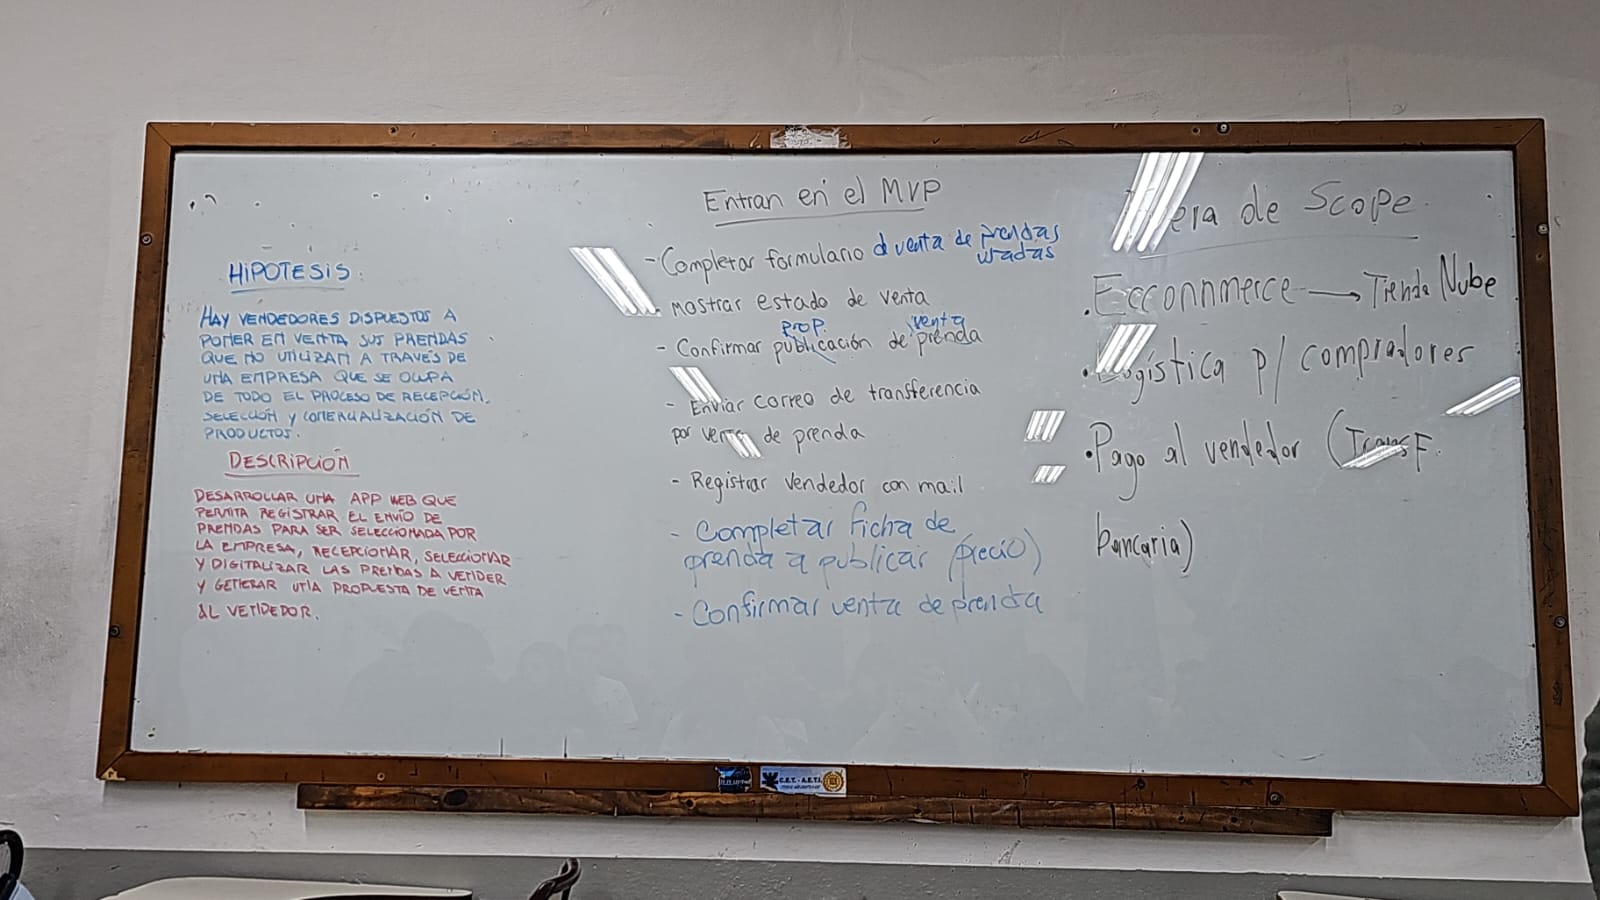 HIPOTESIS:
HAY VENDEDORES DISPUESTOS A
PONER EN VENTA SUS PRENDAS
QUE NO UTILIZAN A TRAVÉS DE
UNA EMPRESA QUE SE OCUPA
DE TODO EL PROCESO DE RECEPCIÓN,
SELECCIÓN Y COMERCIALIZACIÓN DE
PRODUCTOS.
DESCRIPCIÓN
DESARROLLAR UNA APP WEB QUE
PERMITA REGISTRAR EL ENVÍO DE
PRENDAS PARA SER SELECCIONADA POR
LA EMPRESA, RECEPCIONAR, SELECCIONAR
Y DIGITALIZAR LAS PRENDAS A VENDER
Y GENERAR UNA PROPUESTA DE VENTA
AL VENDEDOR.
Entran en el MVP
- Completar formulario d venta de prendas
usadas
. mostrar estado de venta
prop. venta
- Confirmar publicación de prenda
- Enviar correo de transferencia
por venta de prenda
- Registrar vendedor con mail
- Completar ficha de
prenda a publicar (precio)
- Confirmar venta de prenda
de Scope
. Ecconnmerce → Tienda Nube
. Logística p/ compradores
. Pago al vendedor (Transf.
bancaria)
C.E.T. - A.E.T.I.